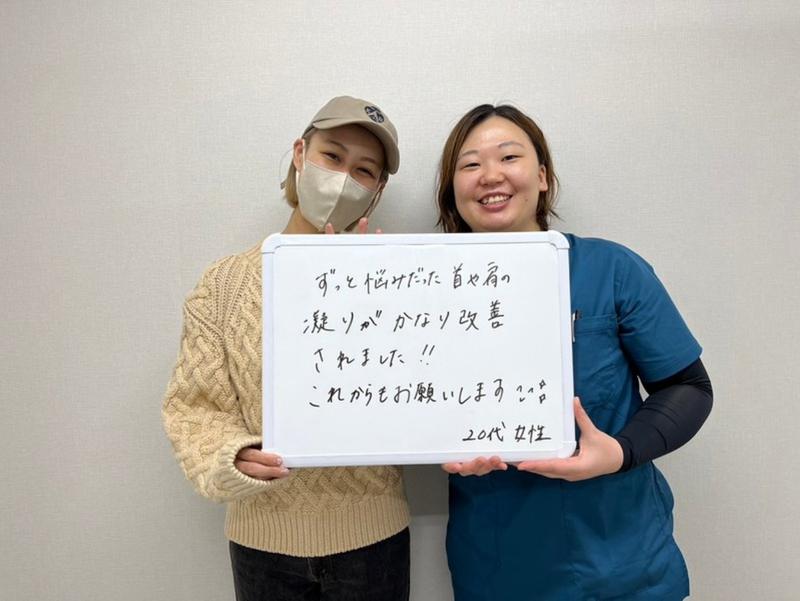 ずっと悩みだった首や肩の
凝りがかなり改善
されました!!
これからもお願いします
20代 女性